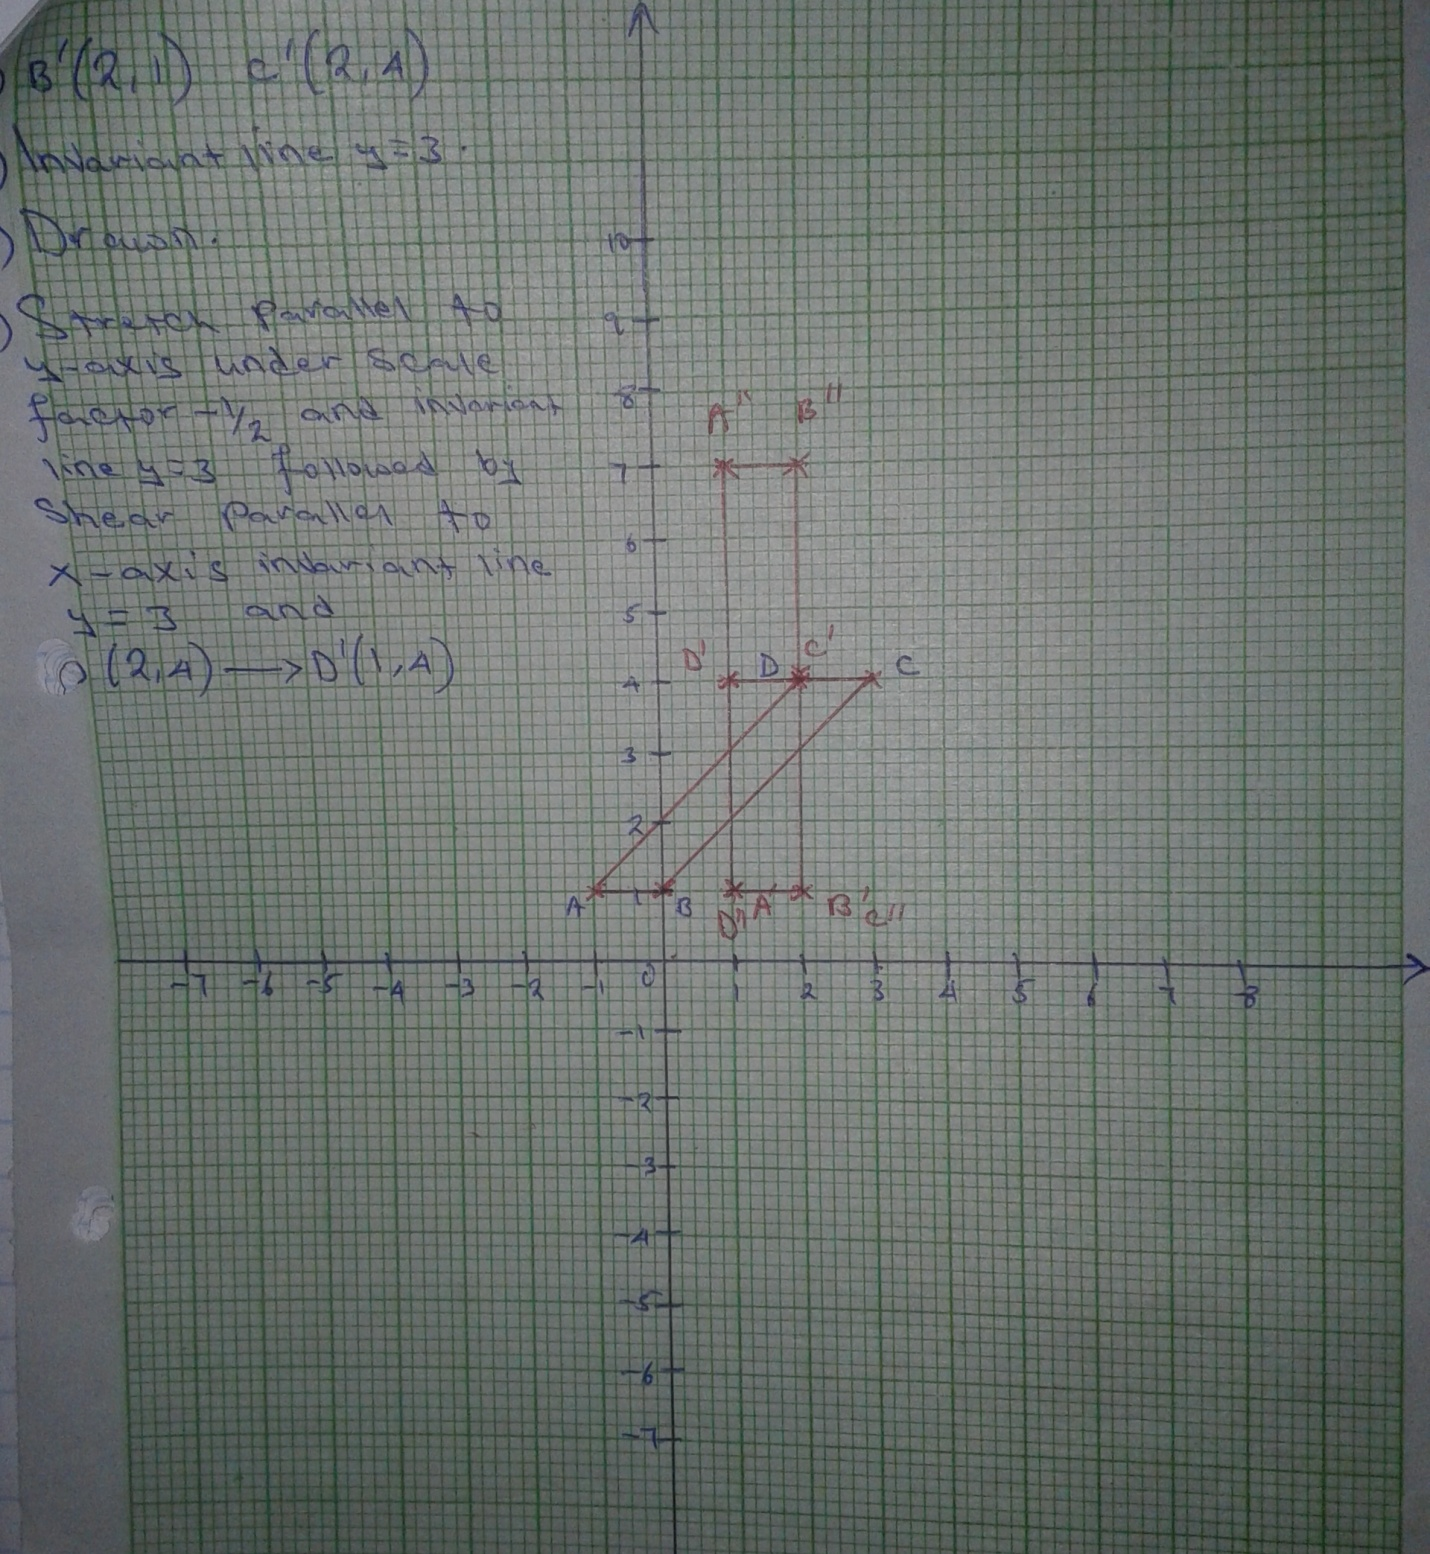 B'(2,1) C'(2,4)
Invariant line y=3.
Drawn.
Stretch parallel to
y-axis under scale
factor -1/2 and invariant
line y=3 followed by
Shear parallel to
x-axis invariant line
y=3 and
D(2,4)→D'(1,4)
10
9
8
A" B"
7
6
5
D' D C' C
4
3
2
A 1 B D" A' B' C"
-7 -6 -5 -4 -3 -2 -1 0 1 2 3 4 5 6 7 8
-1
-2
-3
-4
-5
-6
-7